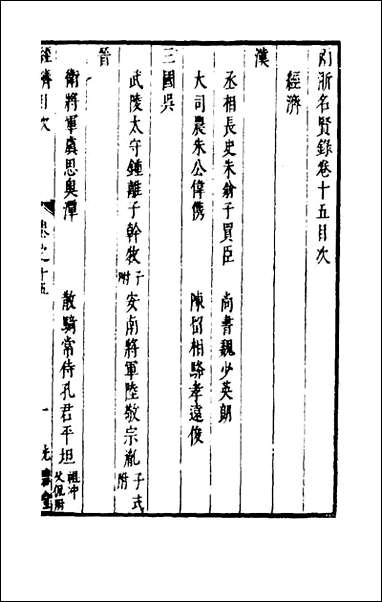 兩浙名賢錄卷十五目次
經濟
漢
丞相長史朱翁子買臣　尚書魏少英朗
大司農朱公偉儁　陳留相駱孝遠俊
三國吳
武陵太守鍾離子幹牧子附　安南將軍陸敬宗胤子式附
晉
衛將軍虞思奧潭　散騎常侍孔君平坦祖冲父侃附
經濟目次　卷之十五　一　光碧堂